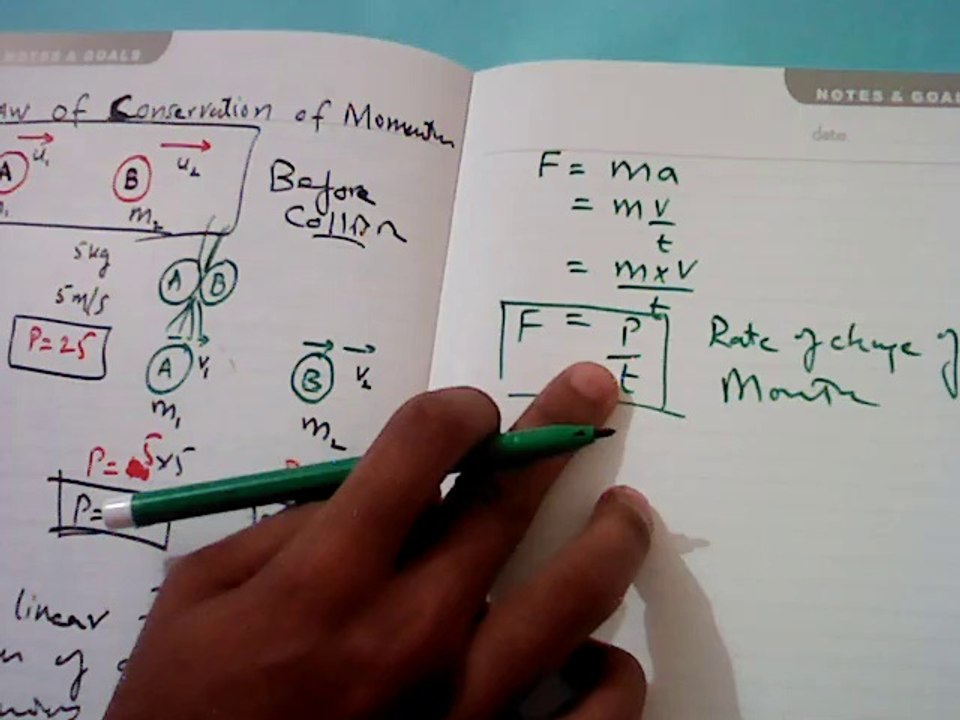 NOTES & GOALS
aw of Conservation of Momentum
A
u₁
B
u₂
m₂
Before
5kg
5m/s
A B
P=25
A
v₁
B
v₂
m₁
m₂
P= 5x5
P=
linear
of
NOTES & GOA
date
F = ma
= m v/t
= m x v / t
F = P/t
Rate of change of